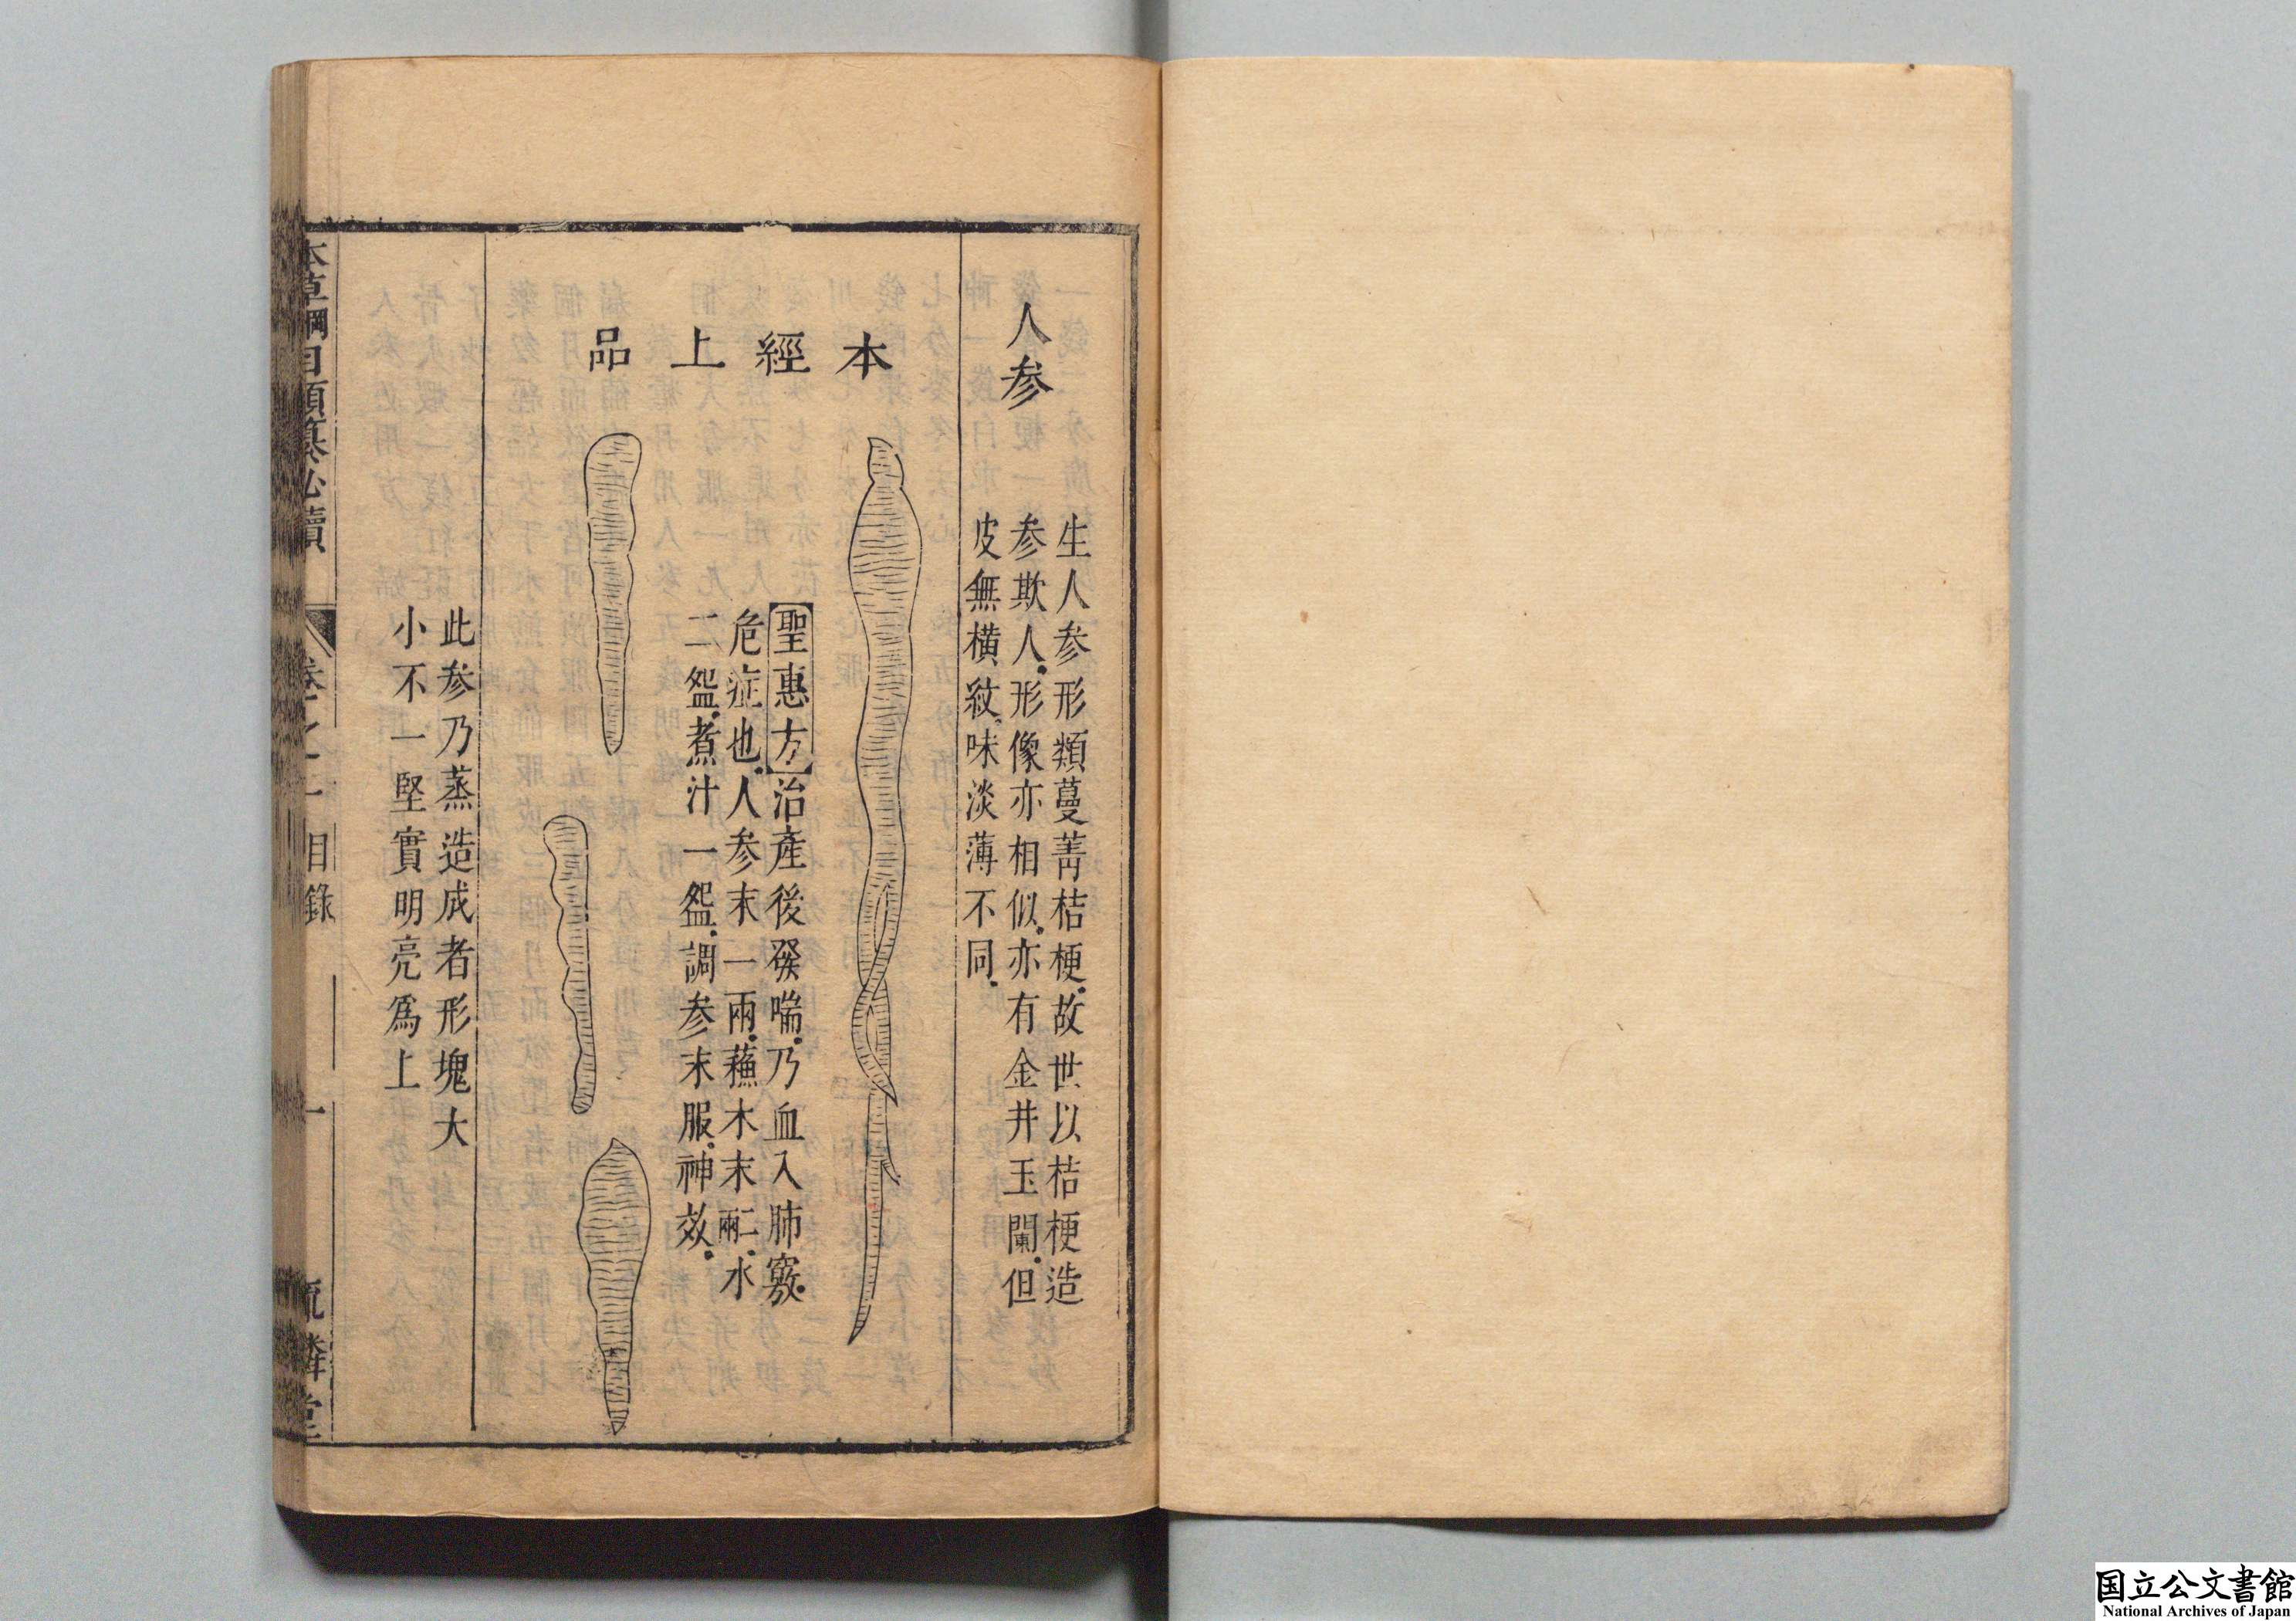 人参
生人参形類蔓菁桔梗故世以桔梗造
参欺人形像亦相似亦有金井玉闌但
皮無橫紋味淡薄不同
本經上品
聖惠方治產後發喘乃血入肺竅
危症也人参末一兩蘓木末二兩水
二盌煮汁一盌調参末服神效
此参乃蒸造成者形塊大
小不一堅實明亮爲上
本草綱目類纂必讀
卷之一目錄
一
毓麟堂
国立公文書館
National Archives of Japan